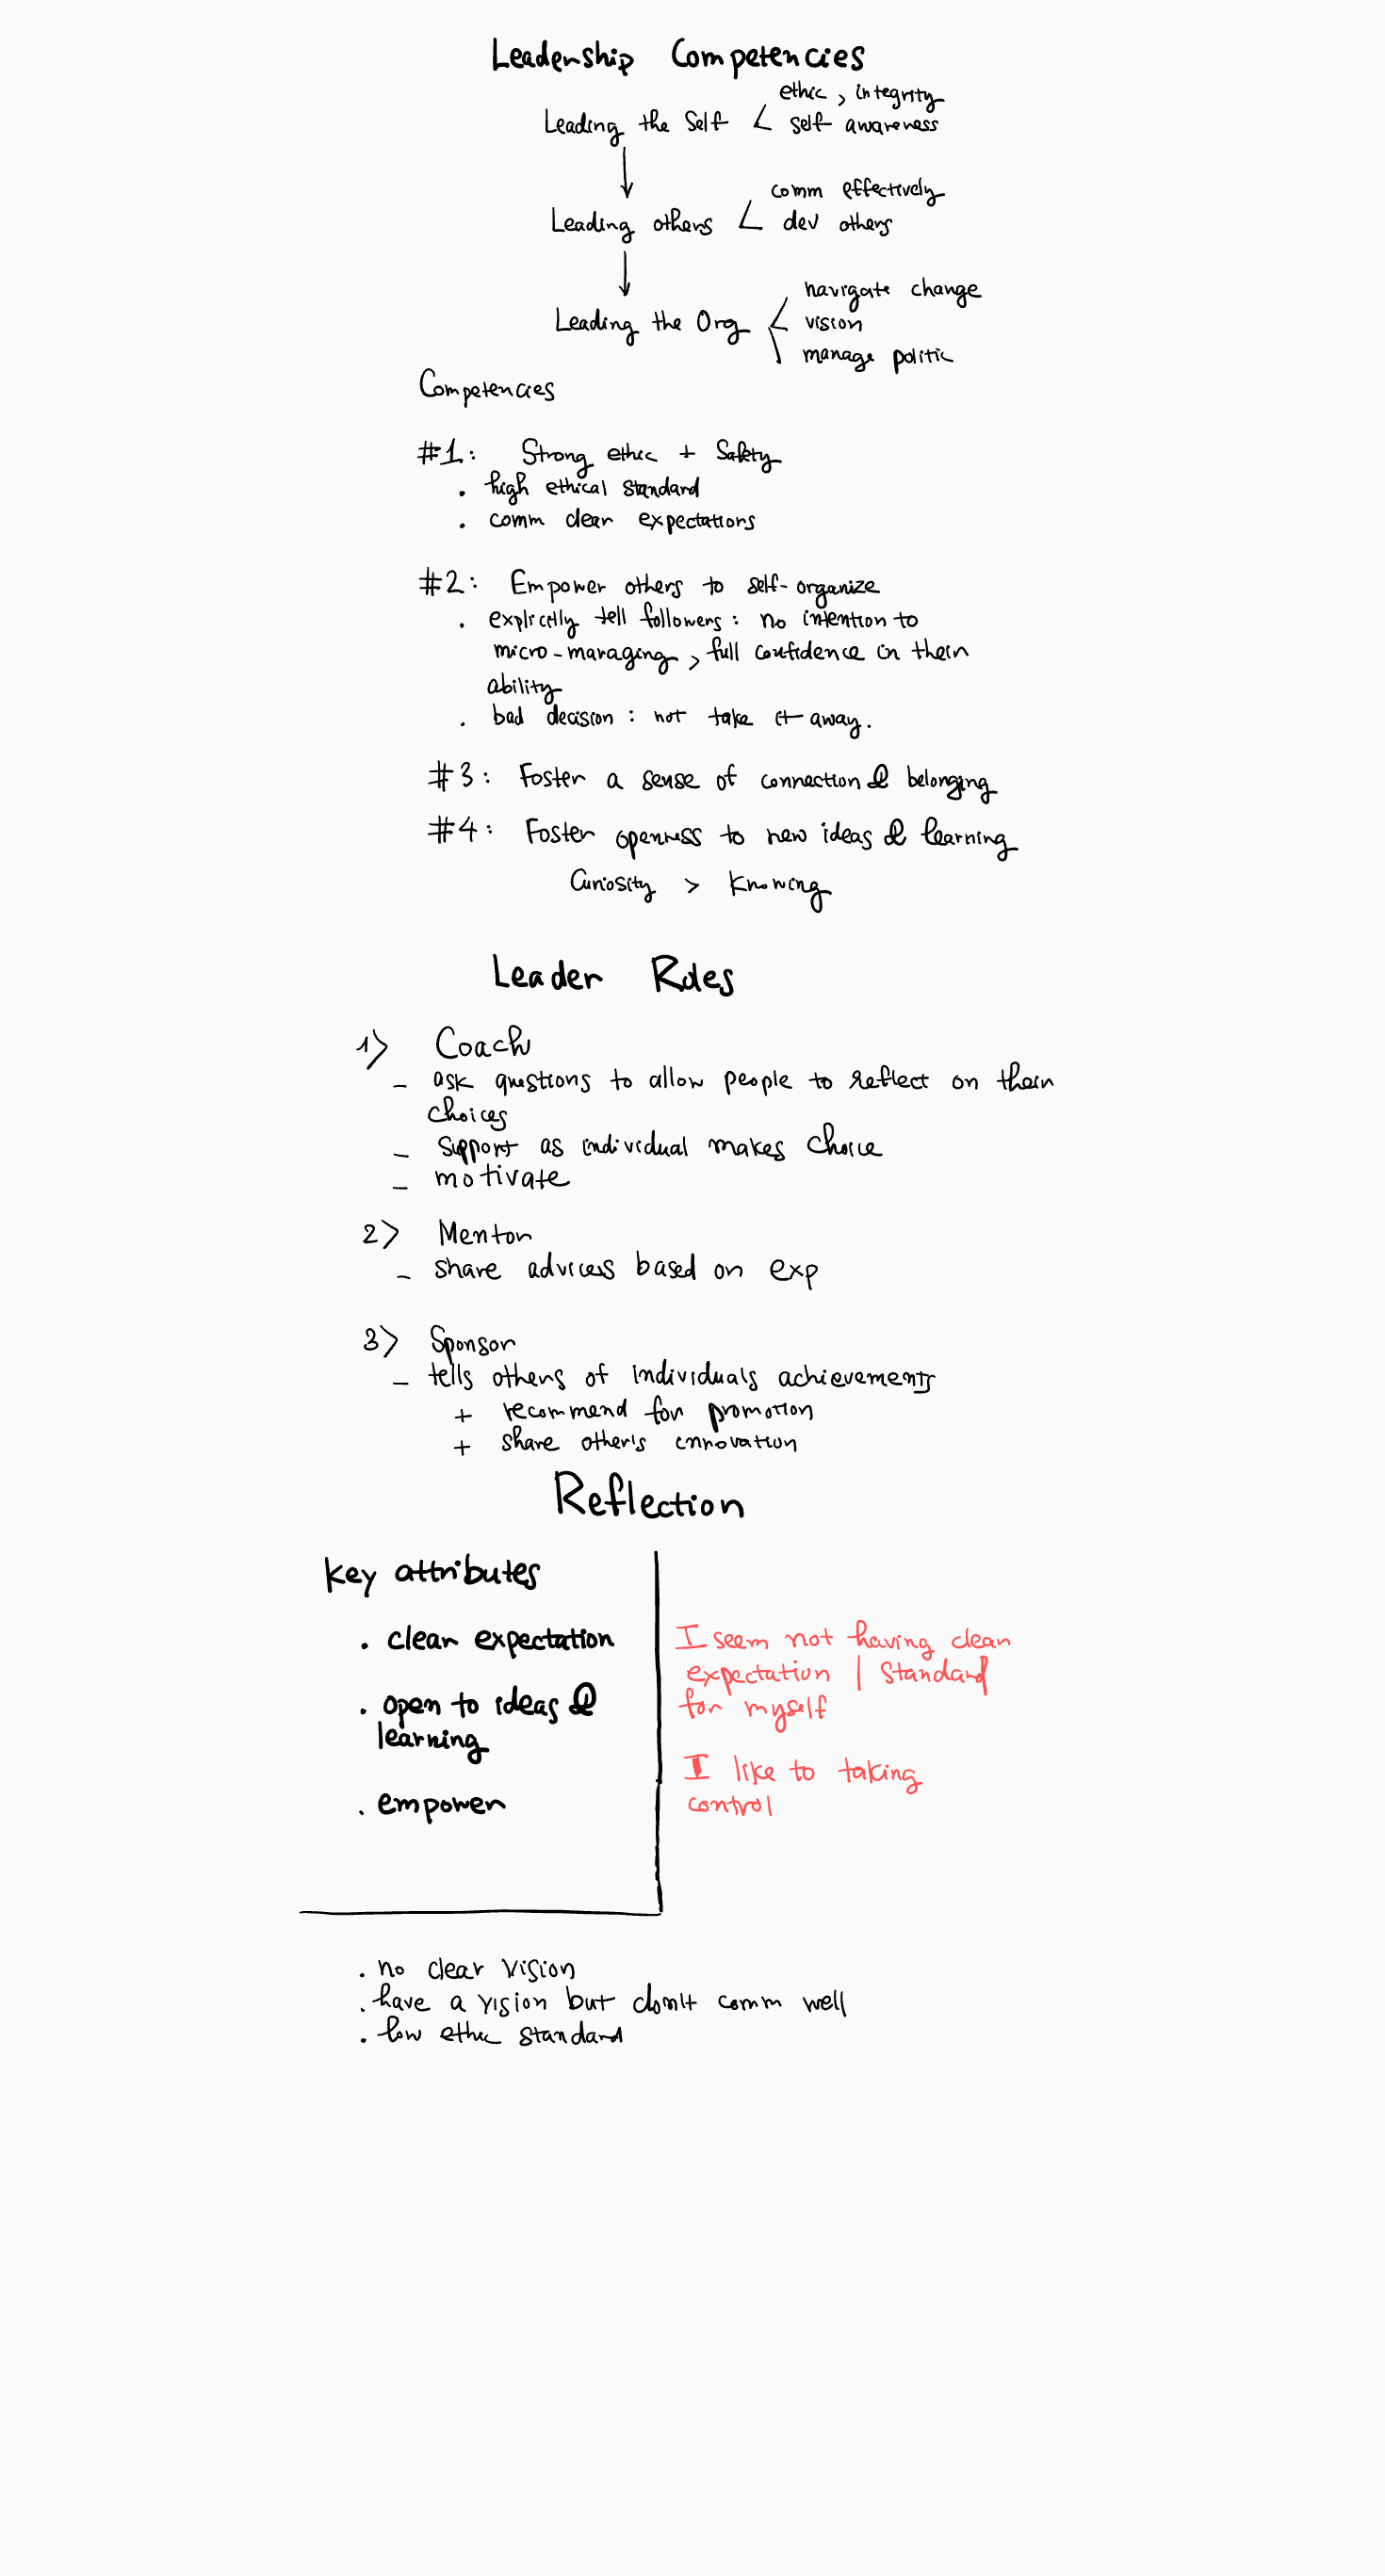 Leadership Competencies
ethic, integrity
Leading the Self < self awareness
comm effectively
Leading others < dev others
navigate change
Leading the Org < vision
manage politic
Competencies
#1: Strong ethic + Safety
. high ethical standard
. comm clear expectations
#2: Empower others to self-organize
. explicitly tell followers: no intention to
micro-managing, full confidence in their
ability
. bad decision: not take it away.
#3: Foster a sense of connection & belonging
#4: Foster openness to new ideas & learning
Curiosity > Knowing
Leader Roles
1) Coach
- ask questions to allow people to reflect on their
choices
- support as individual makes choice
- motivate
2) Mentor
- share advices based on exp
3) Sponsor
- tells others of individuals achievements
+ recommend for promotion
+ share other's innovation
Reflection
key attributes
. clear expectation
I seem not having clear
expectation | standard
for myself
. open to ideas &
learning
I like to taking
control
. empower
. no clear vision
. have a vision but don't comm well
. low ethic standard